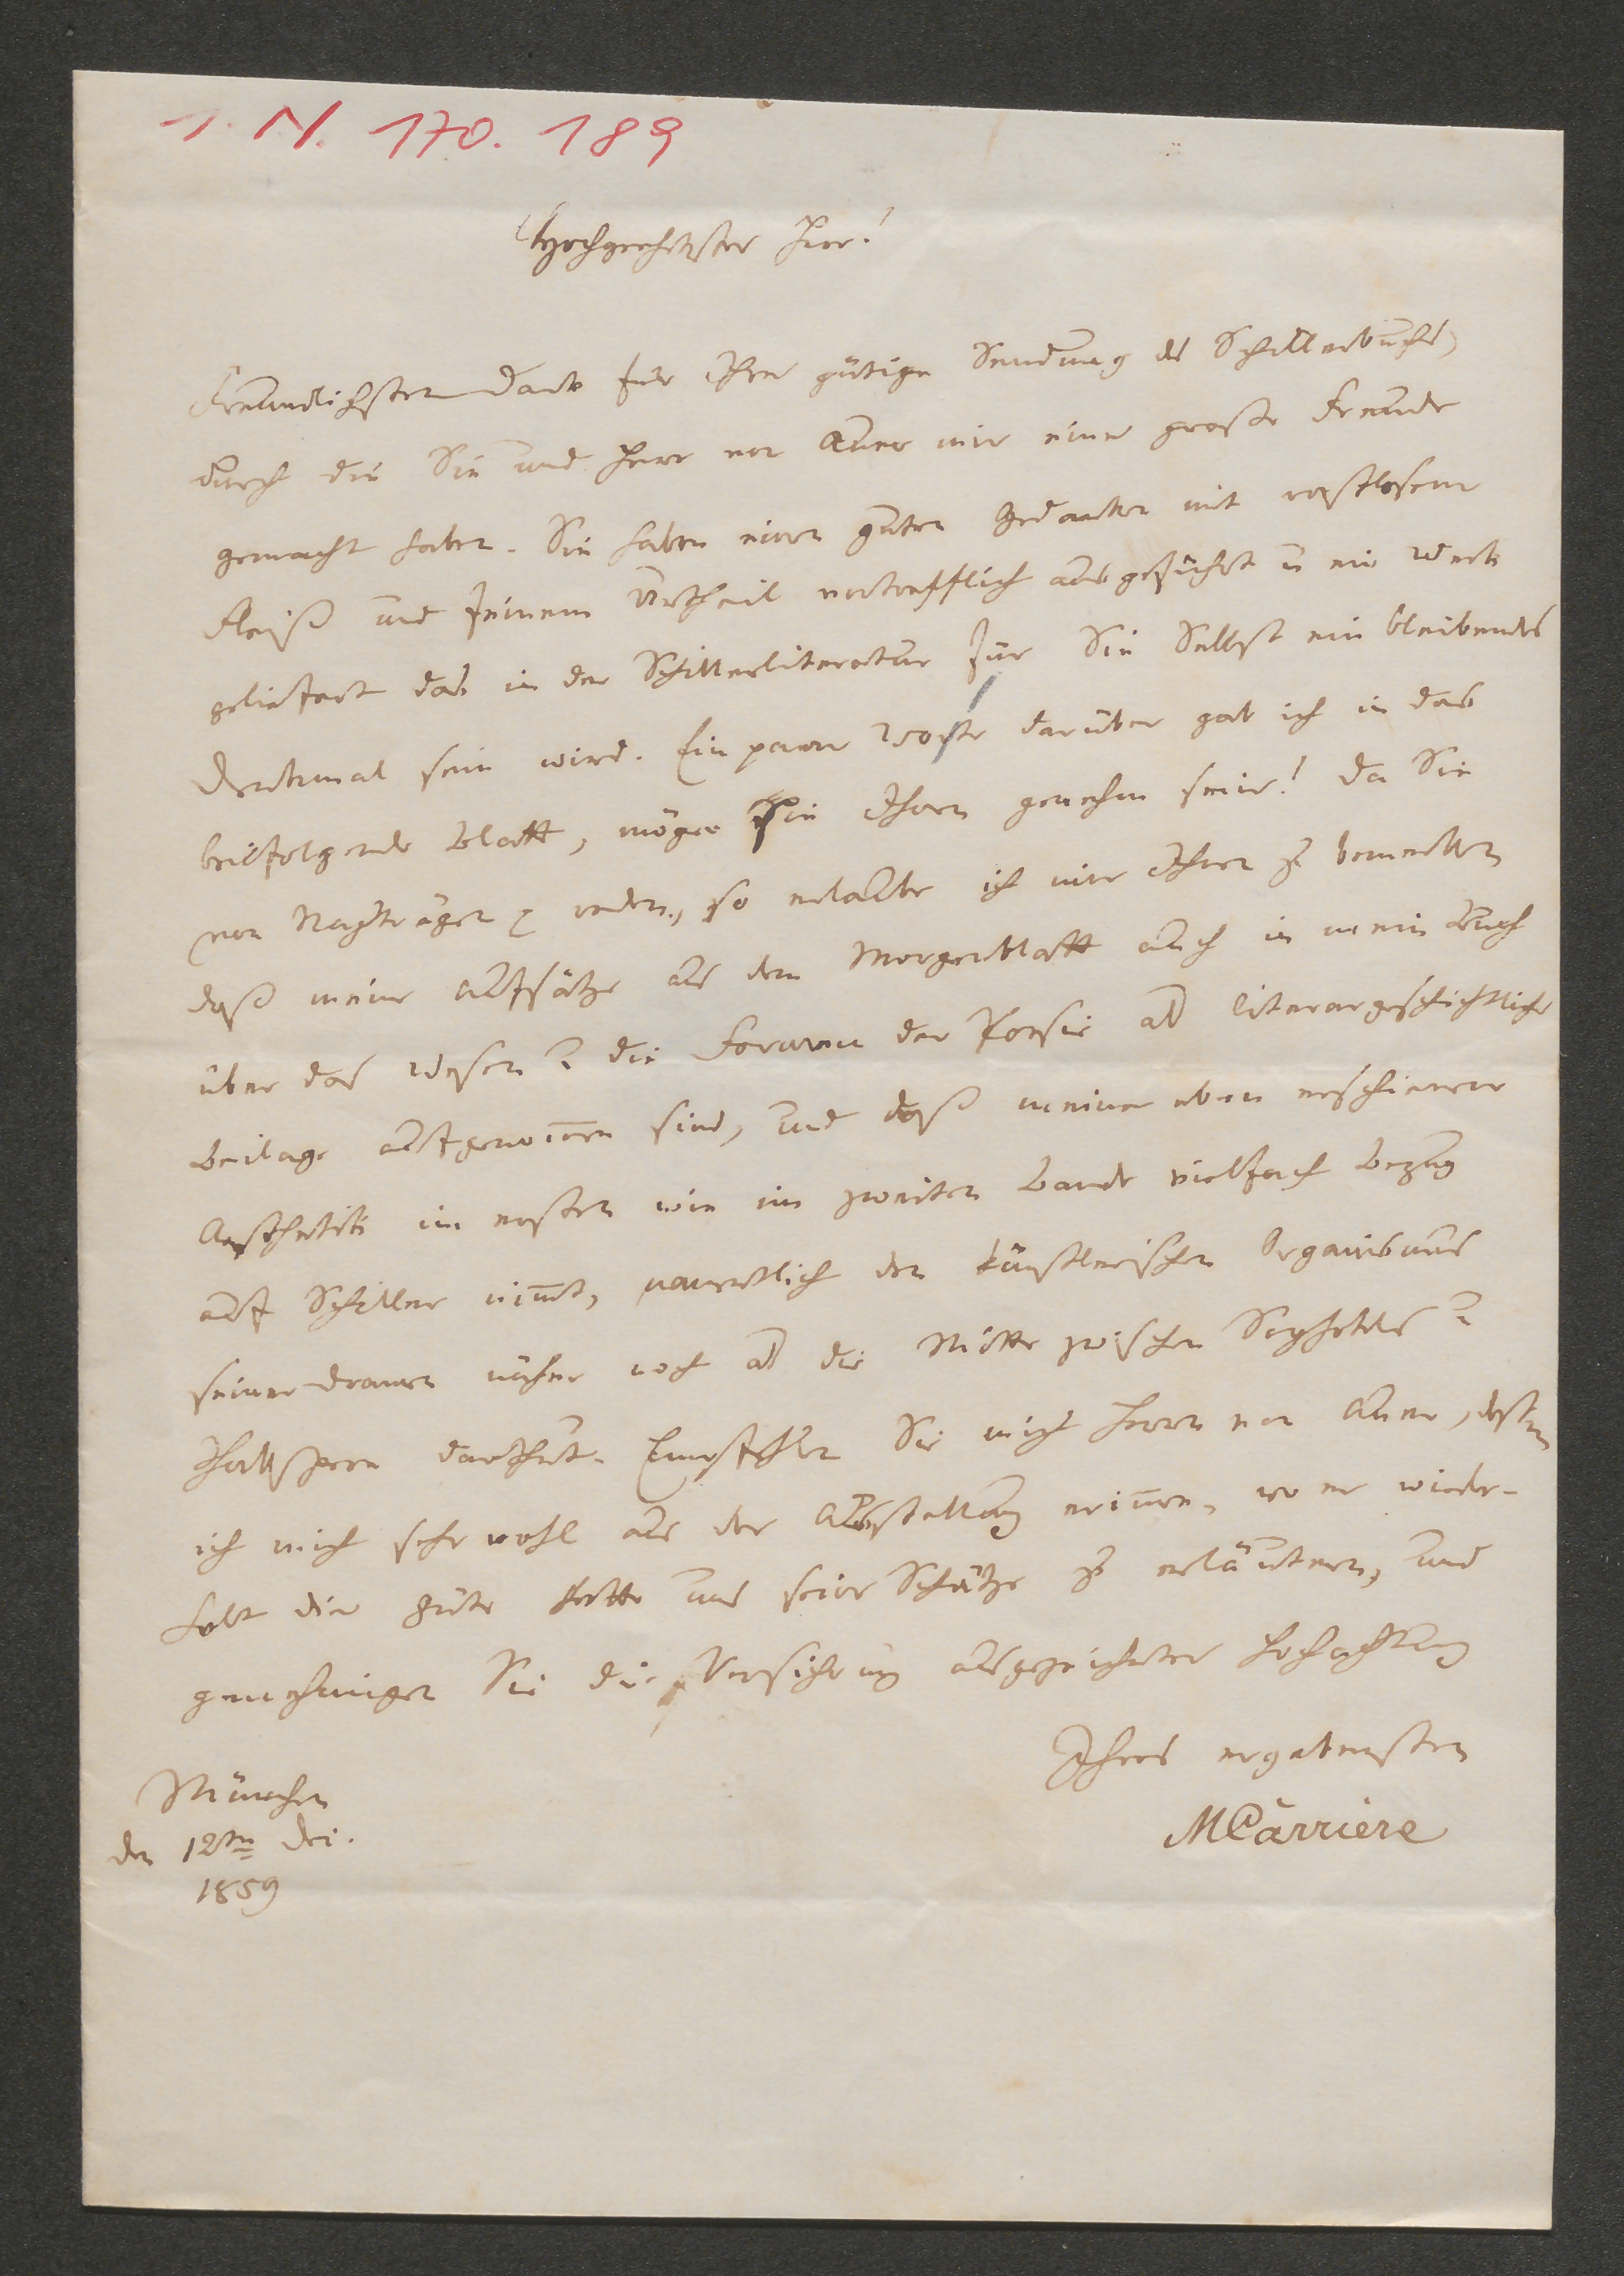 I. N. 170.189
Hochgeehrtester Herr!
Freundlichsten Dank für Ihre gütige Sendung des Schillerbuchs,
durch die Sie und Herr von Auer mir eine große Freude
gemacht haben. Sie haben einen guten Gedanken mit rastlosem
Fleiß und feinem Urtheil vortrefflich ausgeführt u ein Werk
geliefert das in der Schillerliteratur für Sie Selbst ein bleibendes
Denkmal sein wird. Ein paar Worte darüber gab ich in das
beifolgende Blatt, mögen sie Ihnen genehm sein! Da Sie
von Nachträgen reden, so erlaube ich mir Ihnen zu bemerken
daß meine Aufsätze aus dem Morgenblatt auch in mein Buch
über das Wesen u die Formen der Poesie als literargeschichtliche
Beilage aufgenommen sind, und daß meine eben erschienene
Aesthetik im ersten wie im zweiten Bande vielfach Bezug
auf Schiller nimmt, namentlich den künstlerischen Organismus
seiner Dramen näher noch als die Mitte zwischen Sophokles u
Shakspere darthut. Empfehlen Sie mich Herrn von Auer, dessen
ich mich sehr wohl aus der Ausstellung erinnere, wo er wieder-
holt die Güte hatte uns seine Schätze zu erläutern, und
genehmigen Sie die Versicherung ausgezeichneter Hochachtung
Ihres ergebensten
MCarriere
München
den 12ten Dez.
1859